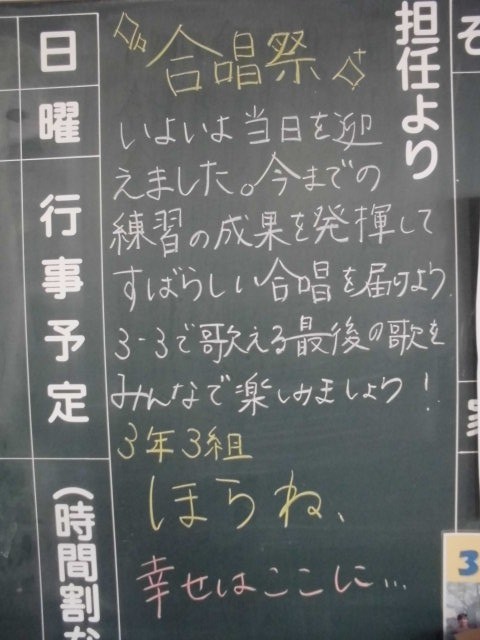 担任より
合唱祭
いよいよ当日を迎
えました。今までの
練習の成果を発揮して
すばらしい合唱を届けよう
3-3で歌える最後の歌を
みんなで楽しみましょう!
3年3組
ほらね、
幸せはここに...
日
曜
行事予定
(時間割な
そ
3